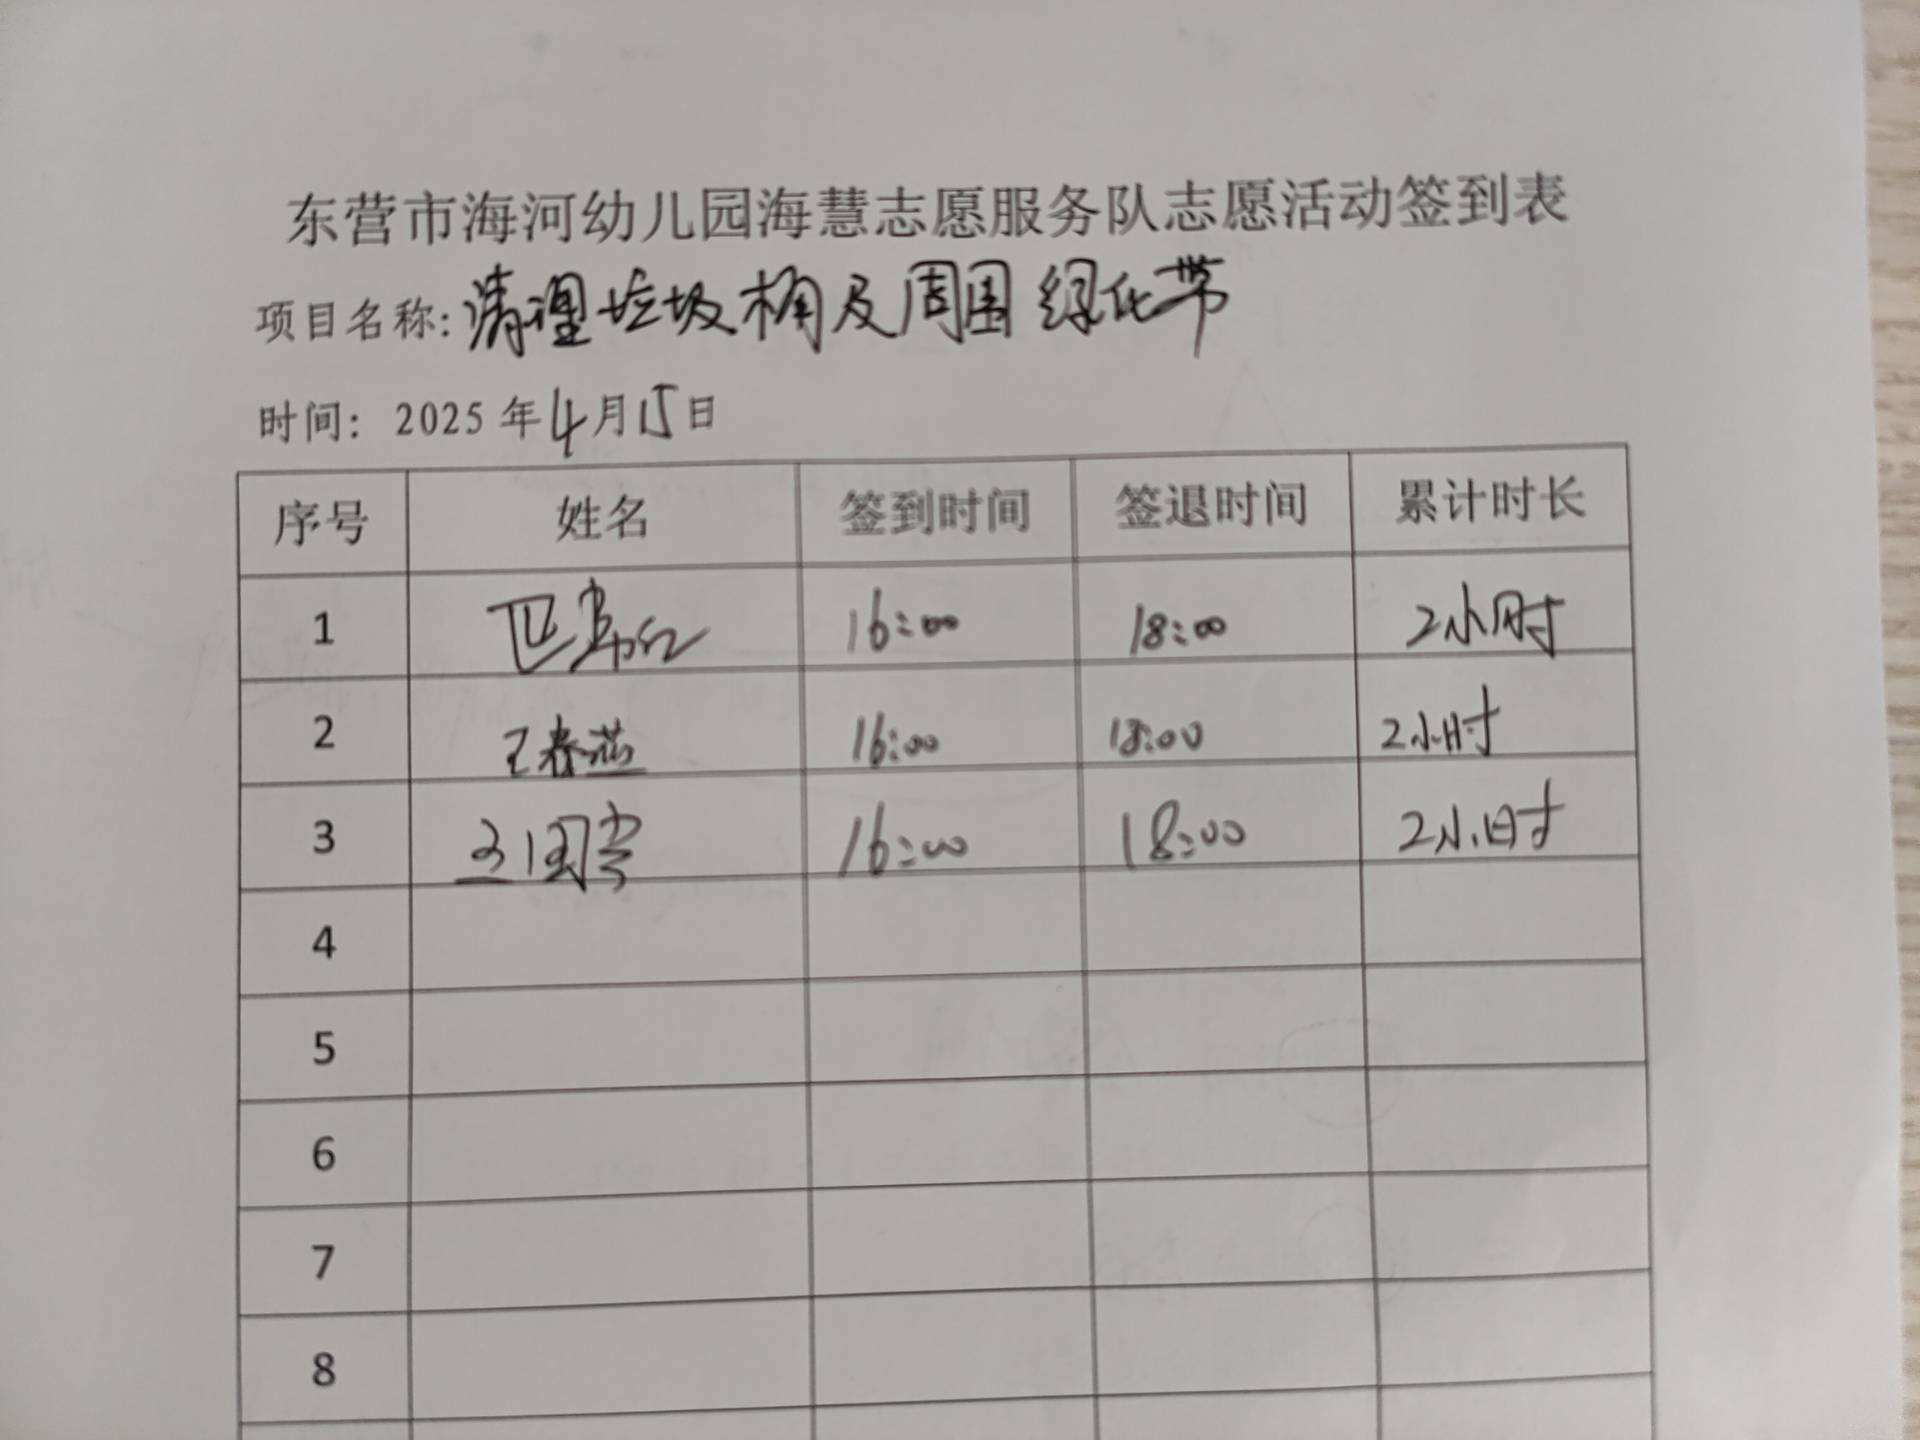 东营市海河幼儿园海慧志愿服务队志愿活动签到表
项目名称:清理垃圾桶及周围绿化带
时间：2025年4月15日
序号 姓名 签到时间 签退时间 累计时长
1 16:00 18:00 2小时
2 王春燕 16:00 18:00 2小时
3 16:00 18:00 2小时
4
5
6
7
8